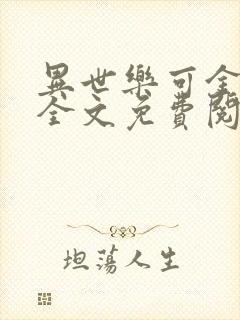 異世樂可全
全文免費閱
坦蕩人生